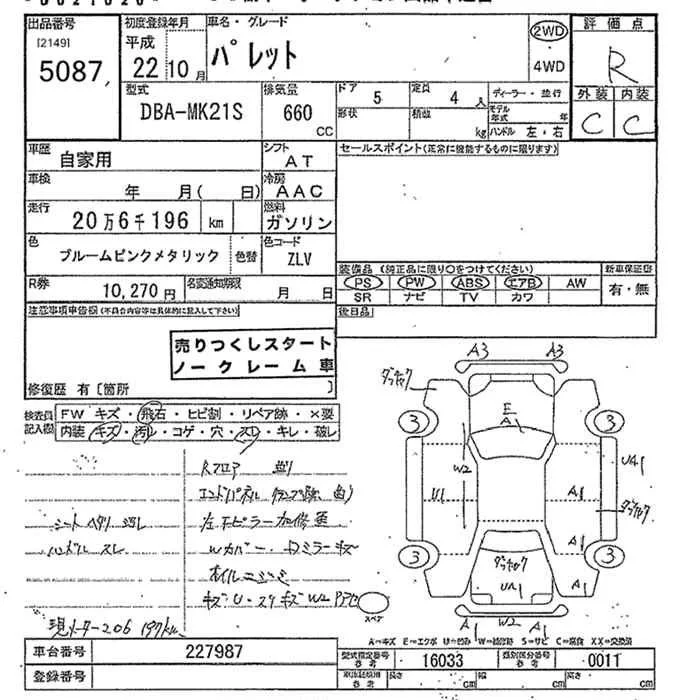 出品番号
[2149]
5087
初度登録年月
平成
22 10月
車名・グレード
パレット
2WD
4WD
評価点
R
外装 内装
C C
型式
DBA-MK21S
排気量
660
CC
ドア
5
定員
4 人
ディーラー・並行
形状
積数
kg
モデル年式 年
ハンドル 左・右
車歴
自家用
シフト
AT
セールスポイント(正常に機能するものに限ります)
車検
年 月( 日)
冷房
AAC
走行
20万6千196 km
燃料
ガソリン
色
ブルームピンクメタリック
色替
色コード
ZLV
装備品 (純正品に限り○をつけてください)
新車保証書
PS PW ABS エアB AW
有・無
SR ナビ TV カワ
R券
10,270円
名変通知期限
月 日
後日品
注意事項申告欄(不具合内容等は具体的に記入して下さい)
売りつくしスタート
ノークレーム車
修復歴 有〔箇所 〕
検査員記入欄
FW キズ・飛石・ヒビ割・リペア跡・×要
内装・キズ・汚レ・コゲ・穴・スレ・キレ・破レ
Rフロア 曲り
シートヘタリ 汚レ
ハンドルスレ
オイルニジミ
現メーター206197km
A3 A3
E
A1
3 3
W2
U1
UA1
A1
A1
3 3
A1
UA1
A1 W2 A1
スペア
A=キズ E=エクボ U=凹み W=補修跡 S=サビ C=腐食 XX=交換済
車台番号
227987
型式指定番号
参考
16033
類別区分番号
参考
0011
登録番号
長さ cm 幅 cm 高さ cm